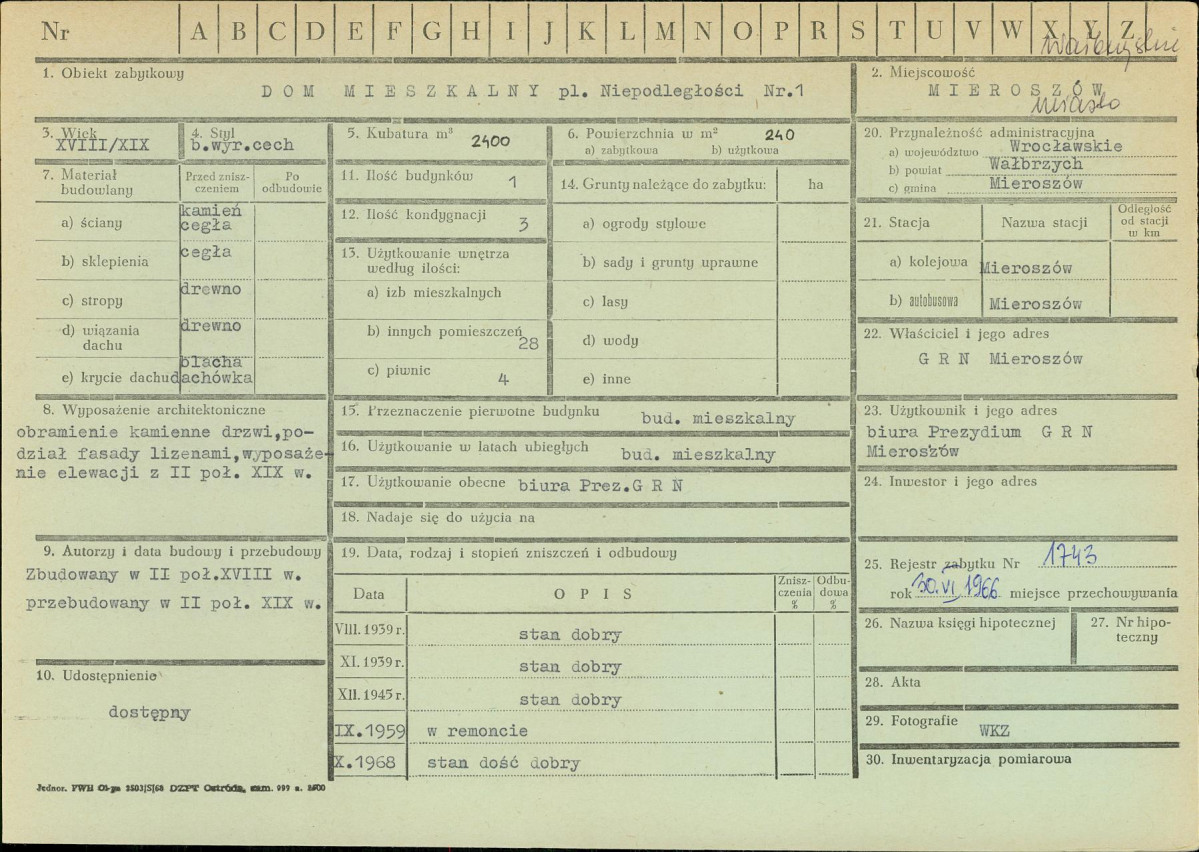 Nr A B C D E F G H I J K L M N O P R S T U V W X Y Z
wałbrzyskie
1. Obiekt zabytkowy
DOM MIESZKALNY pl. Niepodległości Nr.1
2. Miejscowość
MIEROSZÓW
miasto
3. Wiek
XVIII/XIX
4. Styl
b.wyr.cech
5. Kubatura m³
2400
6. Powierzchnia w m² 240
a) zabytkowa b) użytkowa
7. Materiał budowlany
Przed zniszczeniem
Po odbudowie
a) ściany kamień
cegła
b) sklepienia cegła
c) stropy drewno
d) wiązania dachu drewno
e) krycie dachu blacha
dachówka
8. Wyposażenie architektoniczne
obramienie kamienne drzwi,po-
dział fasady lizenami,wyposaże-
nie elewacji z II poł. XIX w.
9. Autorzy i data budowy i przebudowy
Zbudowany w II poł.XVIII w.
przebudowany w II poł. XIX w.
10. Udostępnienie
dostępny
11. Ilość budynków 1
12. Ilość kondygnacji 3
13. Użytkowanie wnętrza
według ilości:
a) izb mieszkalnych
b) innych pomieszczeń 28
c) piwnic 4
14. Grunty należące do zabytku: ha
a) ogrody stylowe
b) sady i grunty uprawne
c) lasy
d) wody
e) inne
15. Przeznaczenie pierwotne budynku bud. mieszkalny
16. Użytkowanie w latach ubiegłych bud. mieszkalny
17. Użytkowanie obecne biura Prez.G R N
18. Nadaje się do użycia na
19. Data, rodzaj i stopień zniszczeń i odbudowy
Data OPIS Zniszczenia % Odbudowa %
VIII. 1939 r. stan dobry
XI. 1939 r. stan dobry
XII. 1945 r. stan dobry
IX.1959 w remoncie
X.1968 stan dość dobry
20. Przynależność administracyjna
a) województwo Wrocławskie
b) powiat Wałbrzych
c) gmina Mieroszów
21. Stacja Nazwa stacji Odległość od stacji w km
a) kolejowa Mieroszów
b) autobusowa Mieroszów
22. Właściciel i jego adres
G R N Mieroszów
23. Użytkownik i jego adres
biura Prezydium G R N
Mieroszów
24. Inwestor i jego adres
25. Rejestr zabytku Nr 1743
rok 30.VI 1966 miejsce przechowywania
26. Nazwa księgi hipotecznej
27. Nr hipo-
teczny
28. Akta
29. Fotografie
WKZ
30. Inwentaryzacja pomiarowa